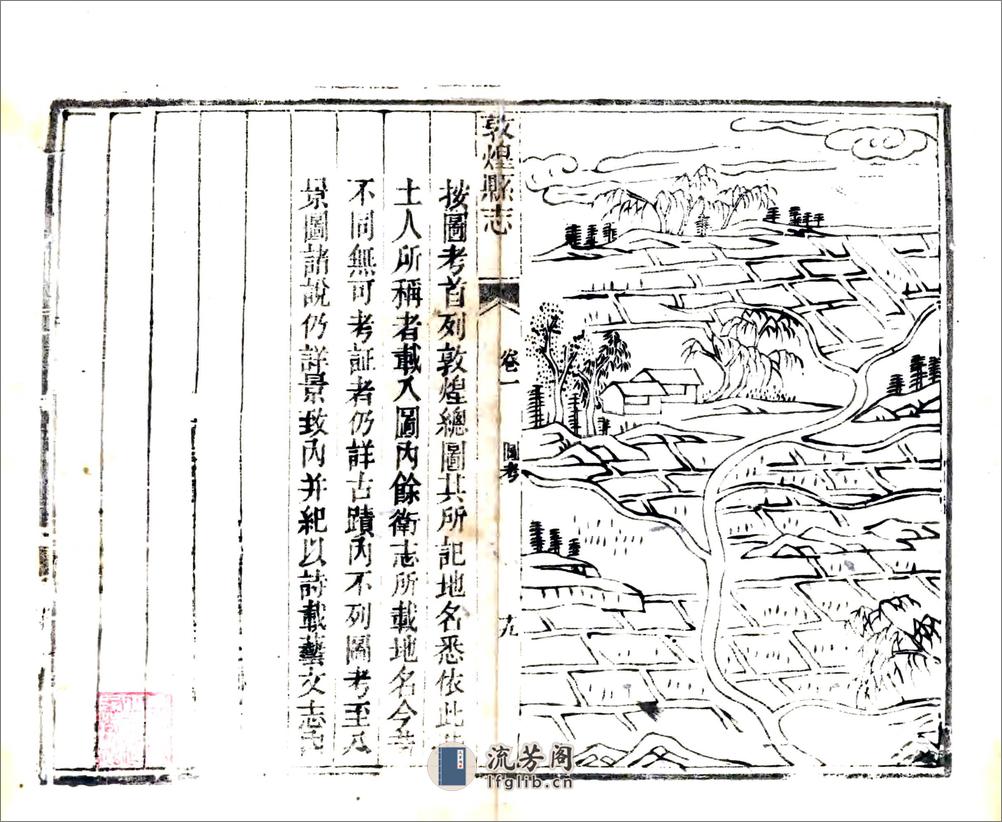 敦煌縣志
卷一
圖考
十九
按圖考首列敦煌總圖其所記地名悉依此
土人所稱者載入圖內餘衛志所載地名今昔
不同無可考証者仍詳古蹟內不列圖考至八
景圖諸說仍詳景致內并紀以詩載藝文志內
流芳阁
lfglib.cn